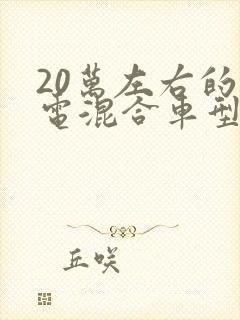 20萬左右的
電混合車型
丘咲